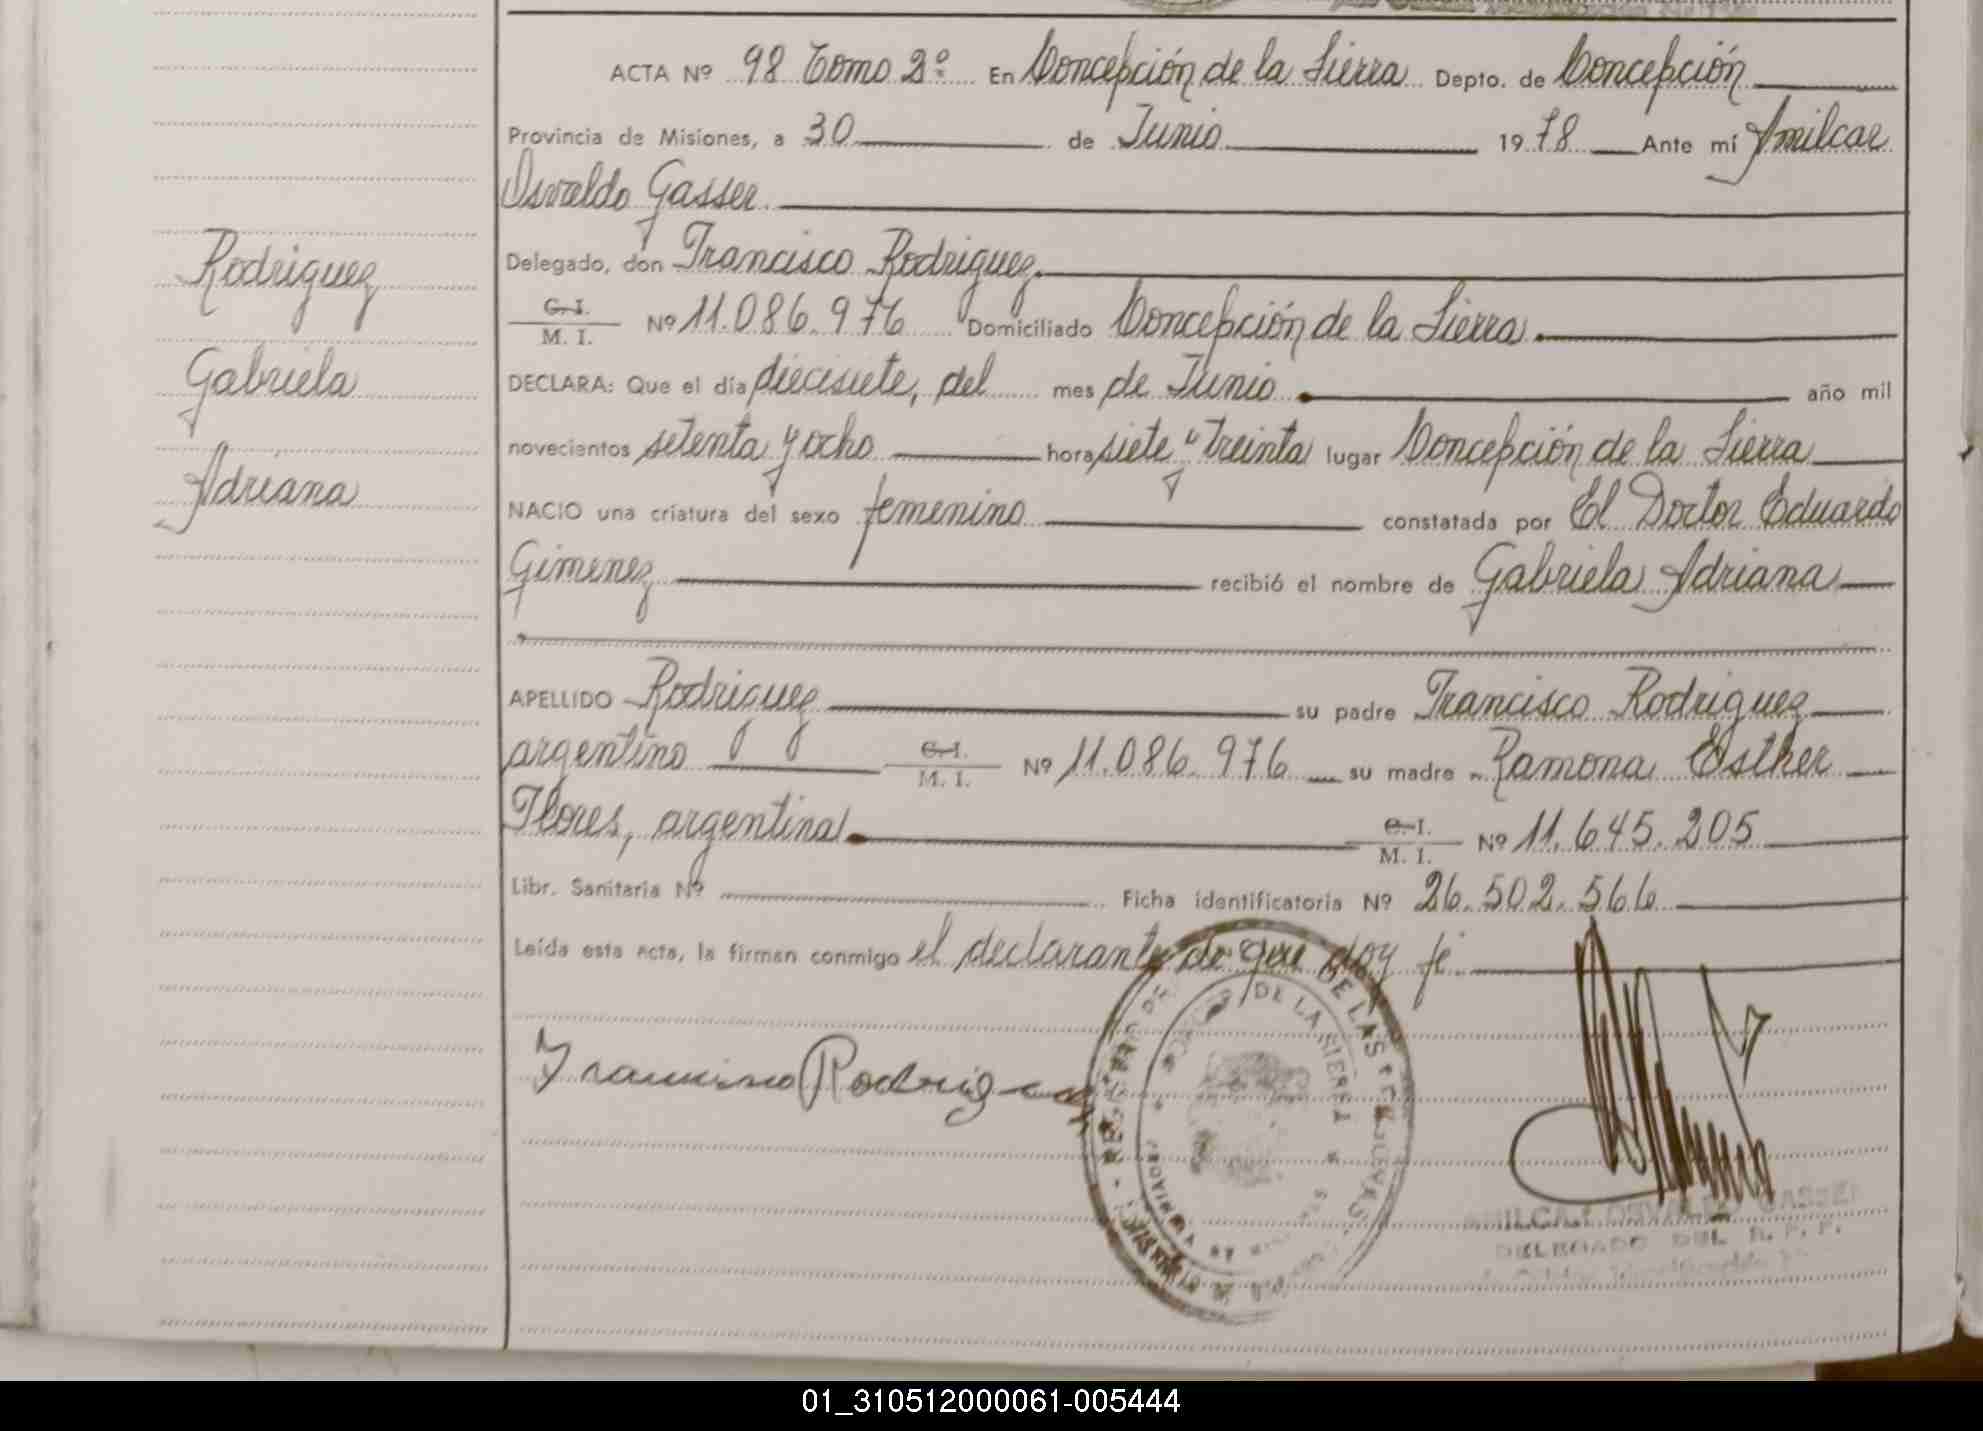 ACTA Nº 98 Tomo 2º En Concepción de la Sierra Depto. de Concepción
Provincia de Misiones, a 30 de Junio 1978 Ante mí Amilcar
Osvaldo Gasser
Delegado, don Francisco Rodriguez
C. I.
M. I. Nº 11.086.976 Domiciliado Concepción de la Sierra
DECLARA: Que el día diecisiete, del mes de Junio año mil
novecientos setenta y ocho hora siete y treinta lugar Concepción de la Sierra
NACIO una criatura del sexo femenino constatada por El Doctor Eduardo
Gimenez recibió el nombre de Gabriela Adriana
APELLIDO Rodriguez su padre Francisco Rodriguez
argentino C. I. M. I. Nº 11.086.976 su madre Ramona Esther
Flores, argentina C. I. M. I. Nº 11.645.205
Libr. Sanitaria Nº Ficha identificatoria Nº 26.502.566
Leída esta acta, la firman conmigo el declarante de que doy fé
Rodriguez
Gabriela
Adriana
Francisco Rodriguez
DE LAS
DE LA SIERRA
AMILCAR OSVALDO GASSER
DELEGADO DEL R. P. P.
01_310512000061-005444